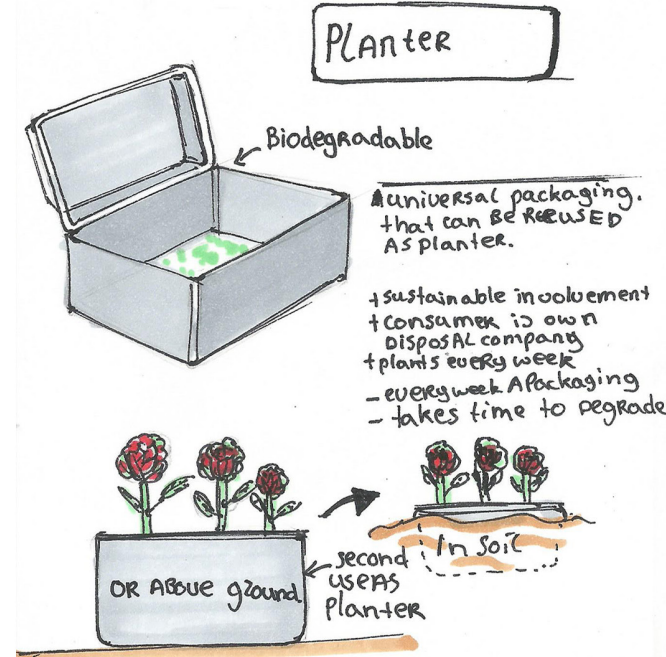 PLanter
Biodegradable
universal packaging.
that can BE REUSED
AS planter.
+ sustainable involvement
+ consumer is own
DISPOSAL company
+ plants every week
- every week A Packaging
- takes time to Degrade
In soil
OR ABove ground
second
use AS
Planter